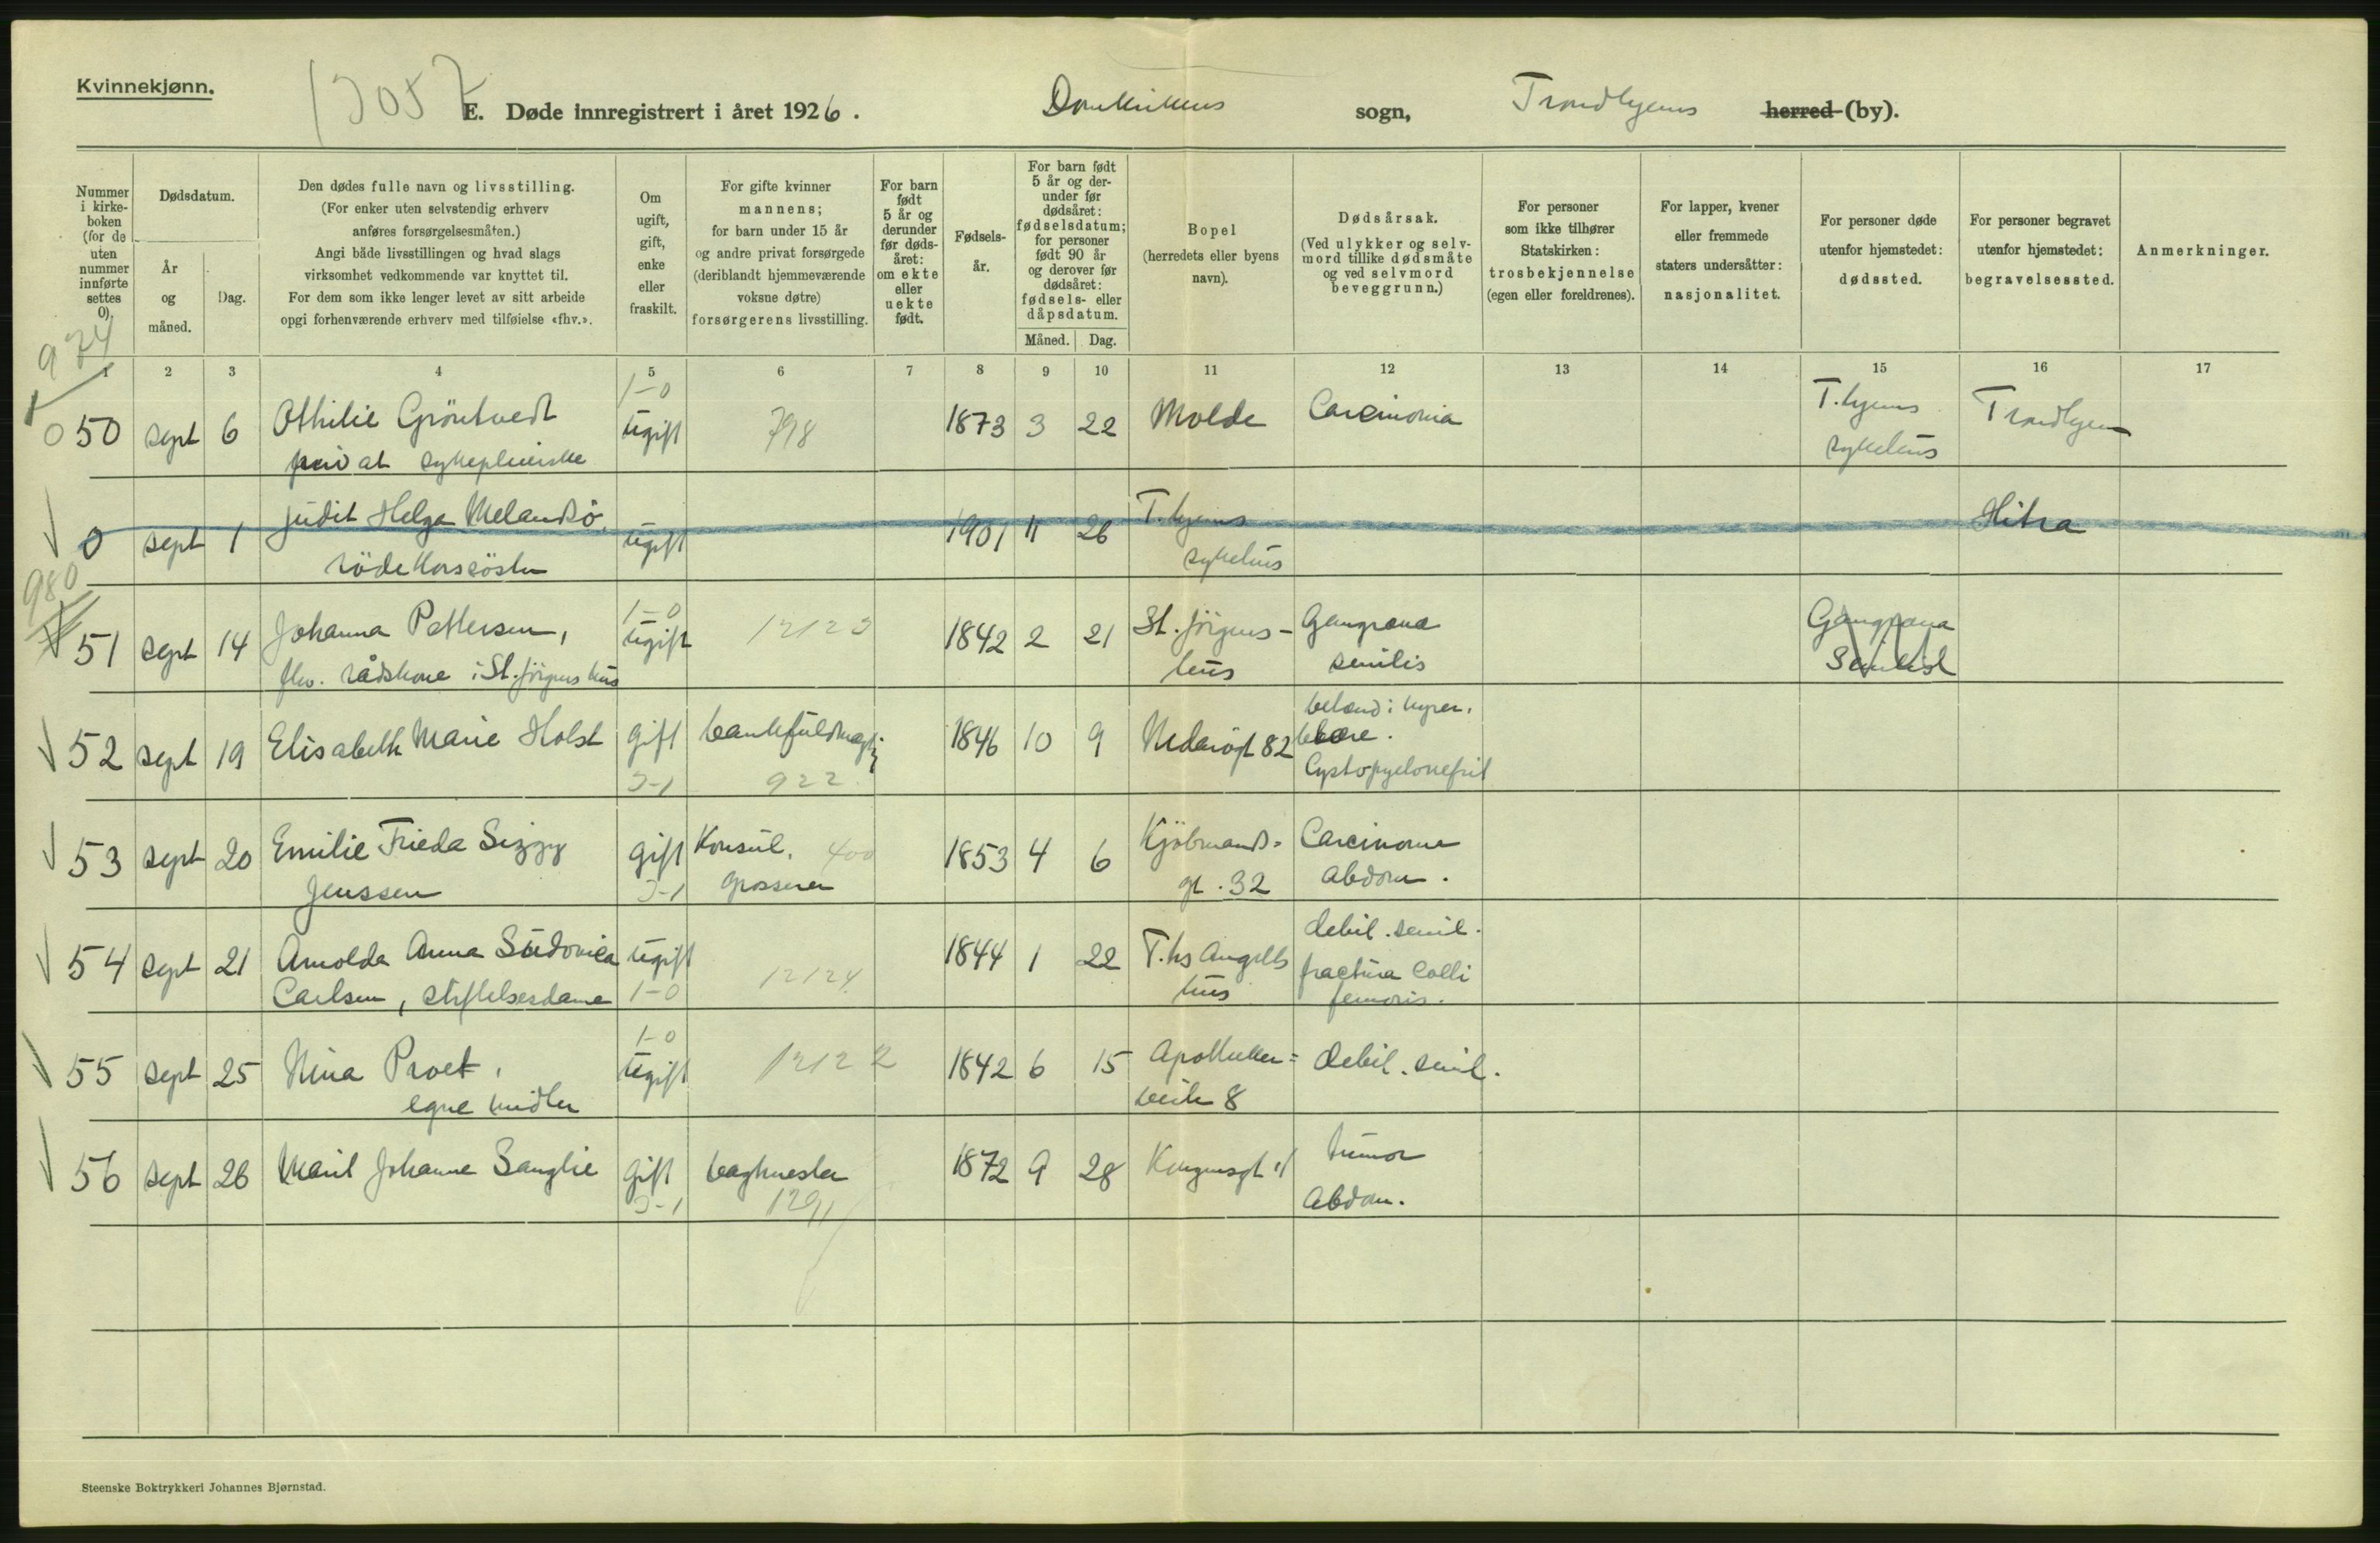 Kvinnekjønn.
E. Døde innregistrert i året 1926. Domkirkens sogn, Trondhjems herred (by).
Nummer i kirkeboken (for de uten nummer innførte settes 0).
Dødsdatum.
År og måned.
Dag.
Den dødes fulle navn og livsstilling.
(For enker uten selvstendig erhverv anføres forsørgelsesmåten.)
Angi både livsstillingen og hvad slags virksomhet vedkommende var knyttet til.
For dem som ikke lenger levet av sitt arbeide opgi forhenværende erhverv med tilføielse «fhv.».
Om ugift, gift, enke eller fraskilt.
For gifte kvinner mannens; for barn under 15 år og andre privat forsørgede (deriblandt hjemmeværende voksne døtre) forsørgerens livsstilling.
For barn født 5 år og derunder før dødsåret: om ekte eller uekte født.
Fødselsår.
For barn født 5 år og derunder før dødsåret: fødselsdatum; for personer født 90 år og derover før dødsåret: fødsels- eller dåpsdatum.
Måned. Dag.
Bopel (herredets eller byens navn).
Dødsårsak. (Ved ulykker og selvmord tillike dødsmåte og ved selvmord beveggrunn.)
For personer som ikke tilhører Statskirken: trosbekjennelse (egen eller foreldrenes).
For lapper, kvener eller fremmede staters undersåtter: nasjonalitet.
For personer døde utenfor hjemstedet: dødssted.
For personer begravet utenfor hjemstedet: begravelsessted.
Anmerkninger.
974
1 2 3 4 5 6 7 8 9 10 11 12 13 14 15 16 17
1-0
50 sept 6 Othilie Gröntvedt ugift 798 1873 3 22 Molde Carcinoma T.hjems Trondhjem
privat sykepleierske sykehus
0 sept 1 Judit Helga Melandsö. ugift 1901 11 26 T.hjems Hitra
röde korssöster sykehus
980
1-0
51 sept 14 Johanna Pettersen, ugift 12123 1842 2 21 St. Jörgens- Gangræna Gangræna
fhv. rådskone i St. Jörgens hus hus senilis
52 sept 19 Elisabeth Marie Holst gift bankfuldmægtig 1846 10 9 Nedreögt 82 betænd i nyrer,
blære.
922 Cystopyelonefrit
53 sept 20 Emilie Frieda Sizzy gift Konsul, 400 1853 4 6 Kjöbmands= Carcinoma
Jenssen grosserer gt. 32 abdom.
54 sept 21 Arnolda Anna Sidonica ugift 1844 1 22 T.hs Angells debil. senil.
Carlsen, stiftelsesdame 1-0 12124 hus fractura Colli
femoris.
1-0
55 sept 25 Nina Proet, ugift 12122 1842 6 15 Apotheker= debil. senil.
egne midler veiten 8
56 sept 26 Marit Johanne Sanglie gift vagtmester 1872 9 28 Kongensgt 11 tumor
1291 abdom.
Steenske Boktrykkeri Johannes Bjørnstad.